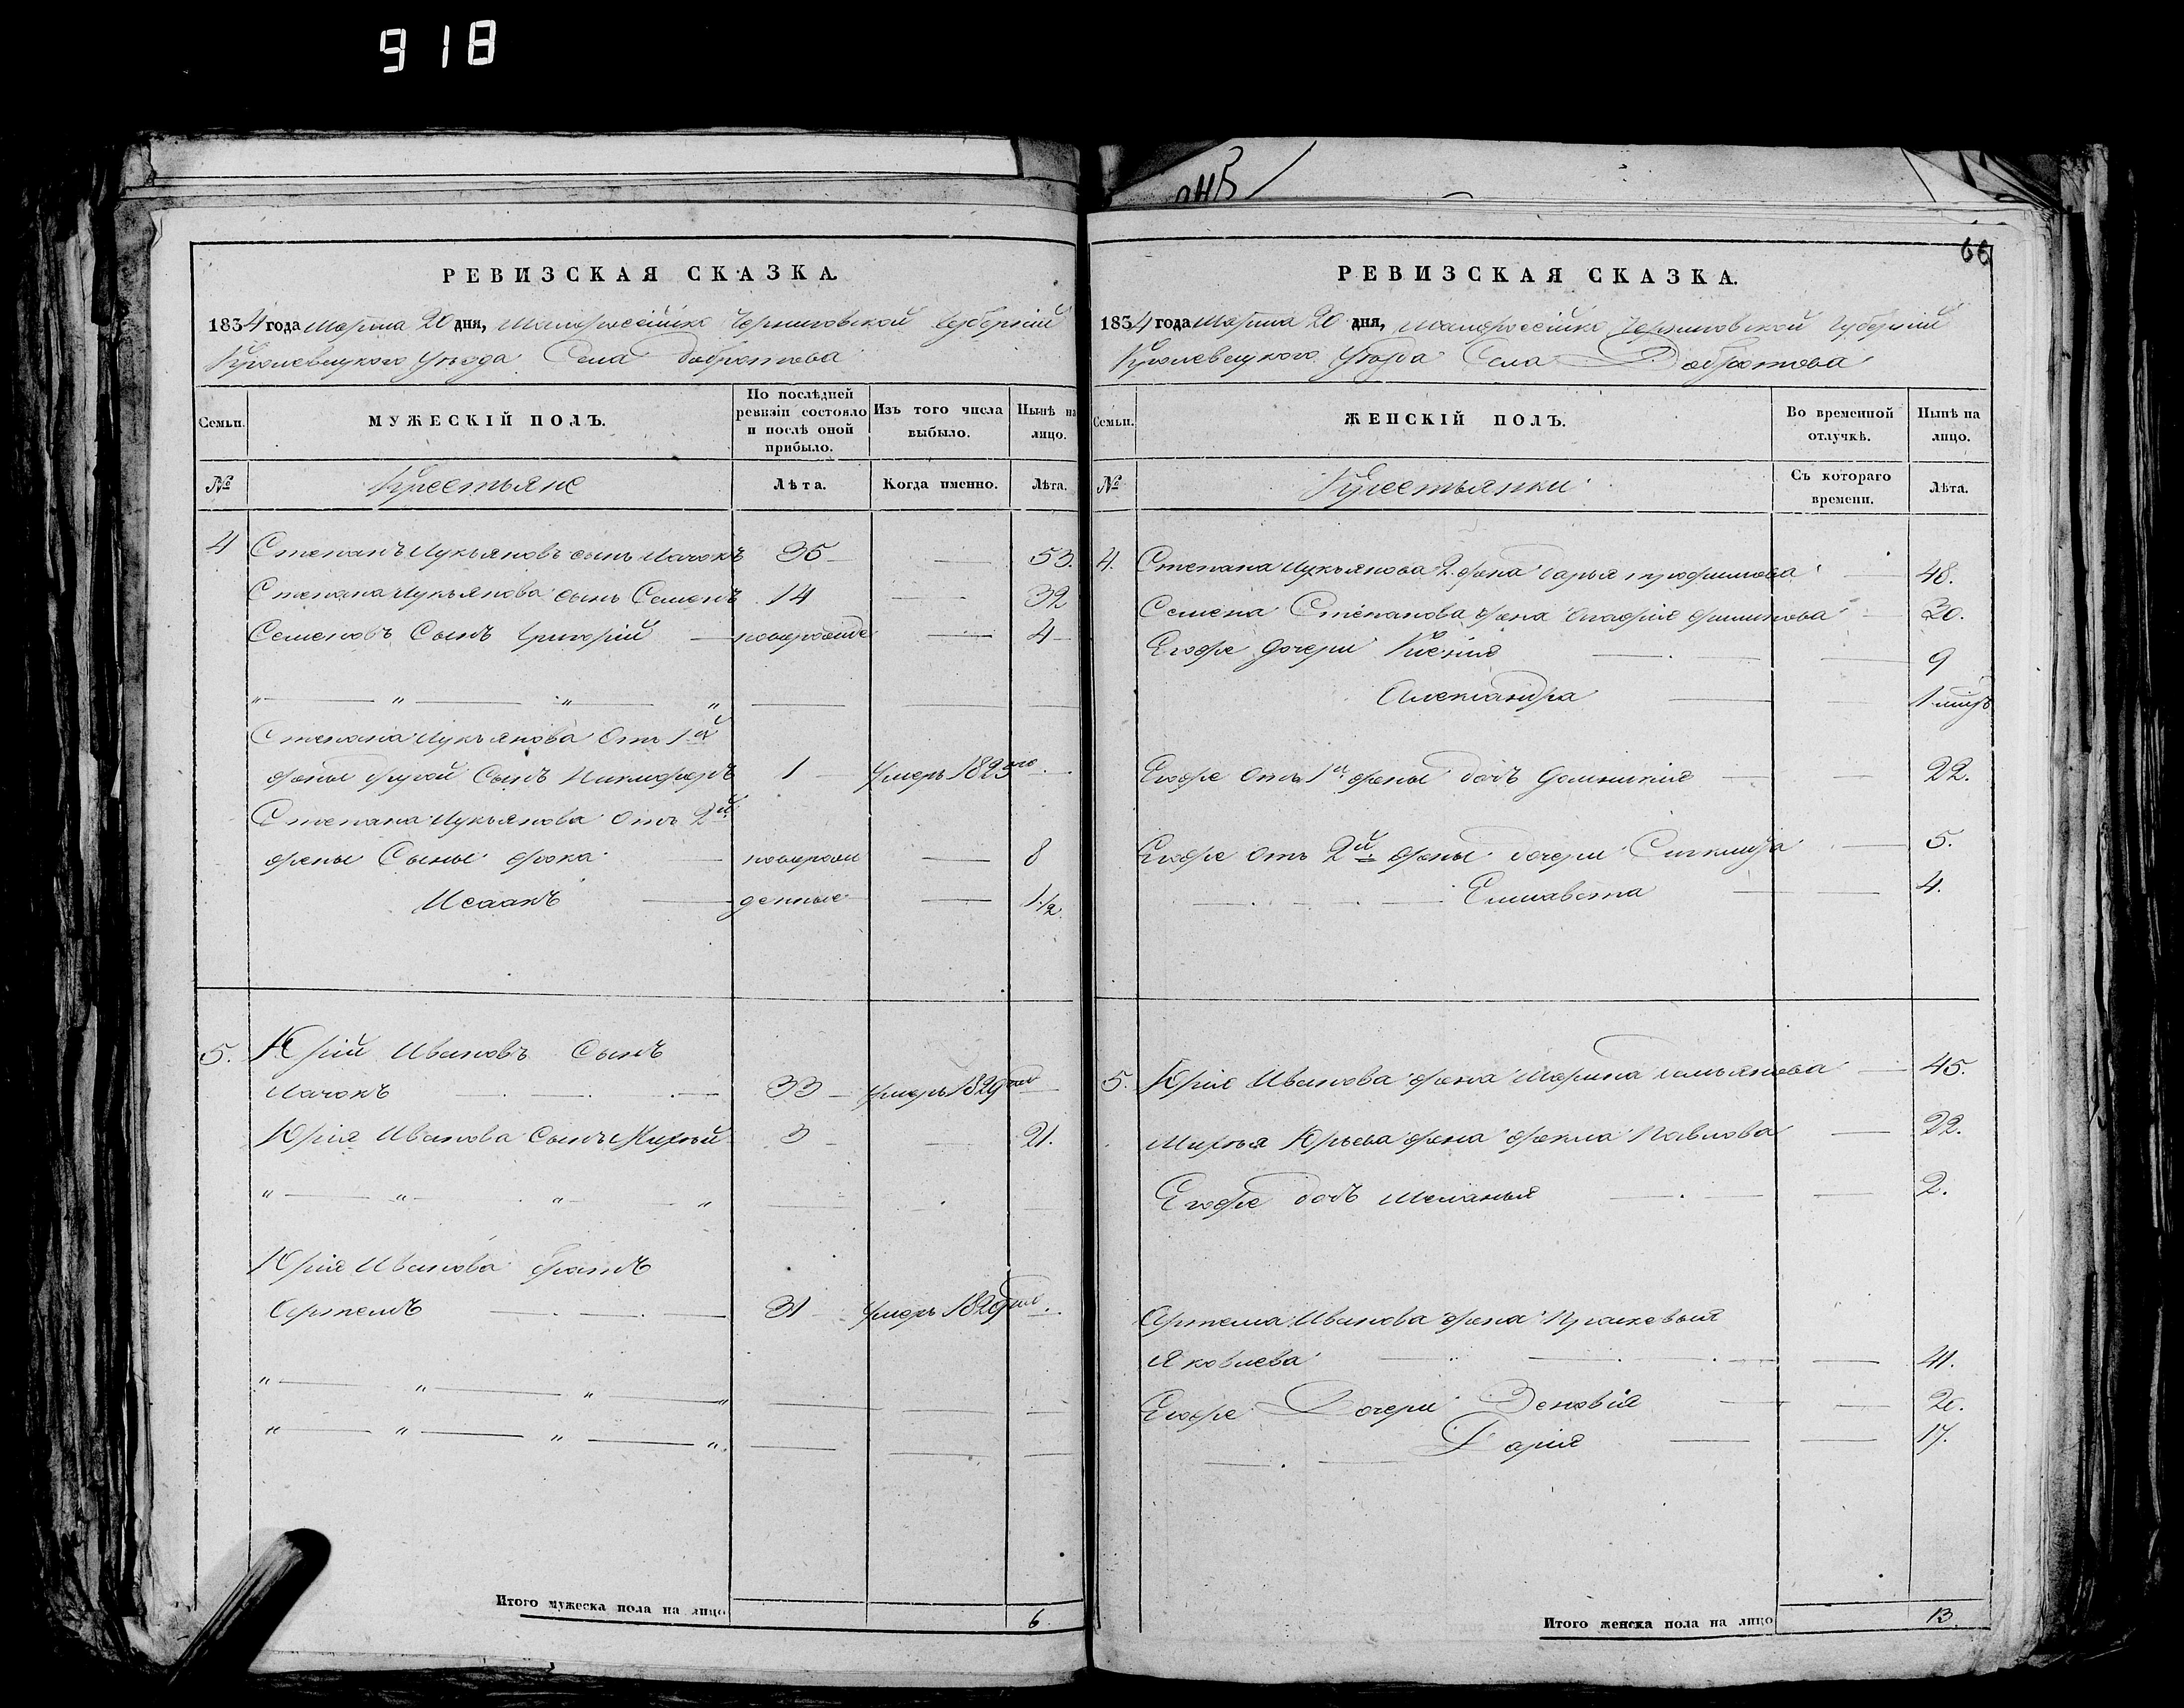 918
РЕВИЗСКАЯ СКАЗКА.
1834 года Марта 20 дня, Малороссійско Черниговской Губерніи
Кролевецкого Уезда Села Добротова
Семьи.
МУЖЕСКІЙ ПОЛЪ.
По послѣдней ревизіи состояло и послѣ оной прибыло.
Изъ того числа выбыло.
Нынѣ на лицо.
№
Крестьяне
Лѣта.
Когда именно.
Лѣта.
4 Степанъ Лукьяновъ сынъ Лачокъ 35 53.
Степана Лукьянова сынъ Семенъ 14 32
Семеновъ Сынъ Григорій новорожде 4
Степана Лукьянова Отъ 1й
жены другой Сынъ Никифоръ 1 Умеръ 1825го
Степана Лукьянова Отъ 2й
жены Сыны Фока новорож 8
Исаакъ денные 1 1/2.
5. Юрій Ивановъ Сынъ
Лачокъ 33 Умеръ 1829
Юрія Иванова Сынъ Михѣй 3 21.
Юрія Иванова братъ
Артемъ 31 Умеръ 1829
Итого мужеска пола на лицо
6
66
РЕВИЗСКАЯ СКАЗКА.
1834 года Марта 20 дня, Малороссійско Черниговской Губерніи
Кролевецкого Уезда Села Добротова
Семьи.
ЖЕНСКІЙ ПОЛЪ.
Во временной отлучкѣ.
Нынѣ на лицо.
№
Крестьянки
Съ котораго времени.
Лѣта.
4. Степана Лукьянова 2. жена Дарья Трофимова 48.
Семена Степанова жена Агафія 30.
Егоже дочери Ксенія 9
Александра
Егоже Отъ 1й жены дочь Домникія 22.
Егоже отъ 2й жены дочери 5.
Елисавета 4.
5. Юрія Иванова жена Марина Демьянова 45.
Михѣя Юрьева жена Фекла Павлова 22.
Егоже дочь Меланья 2.
Артема Иванова жена Прасковья
Яковлева 41.
Егоже Дочери Зеновія 20.
Дарія 17.
Итого женска пола на лицо
13.